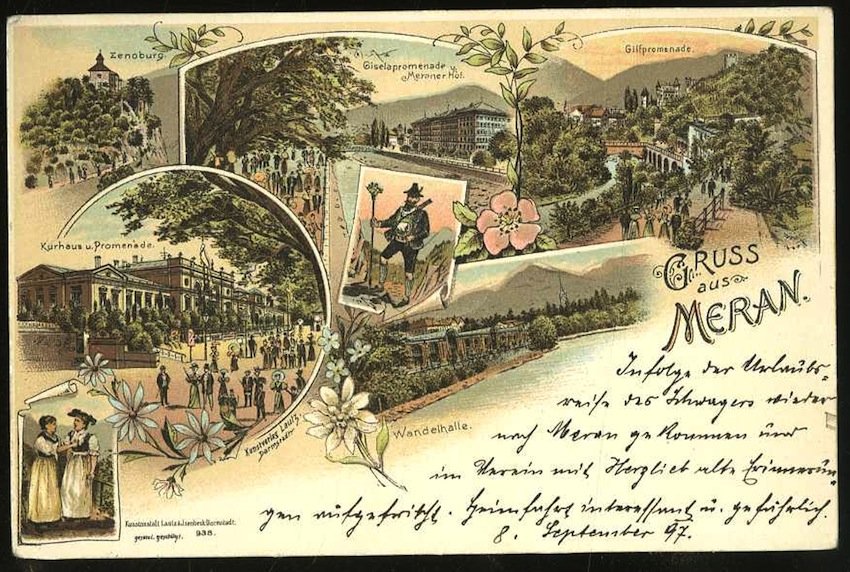 Zenoburg.
Giselapromenade u.
Meraner Hof.
Gilfpromenade.
Kurhaus u. Promenade.
GRUSS
aus
MERAN.
Wandelhalle.
Kunstverlag Lautz
Darmstadt
Kunstanstalt Lautz & Isenbeck Darmstadt.
gesetzl. geschützt. 938.
Infolge der Urlaubs-
reise des Schwagers wieder
nach Meran gekommen und
im Verein mit Herzlieb alte Erinnerun
gen aufgefrischt. Heimfahrt interessant u. gefährlich.
8. September 97.